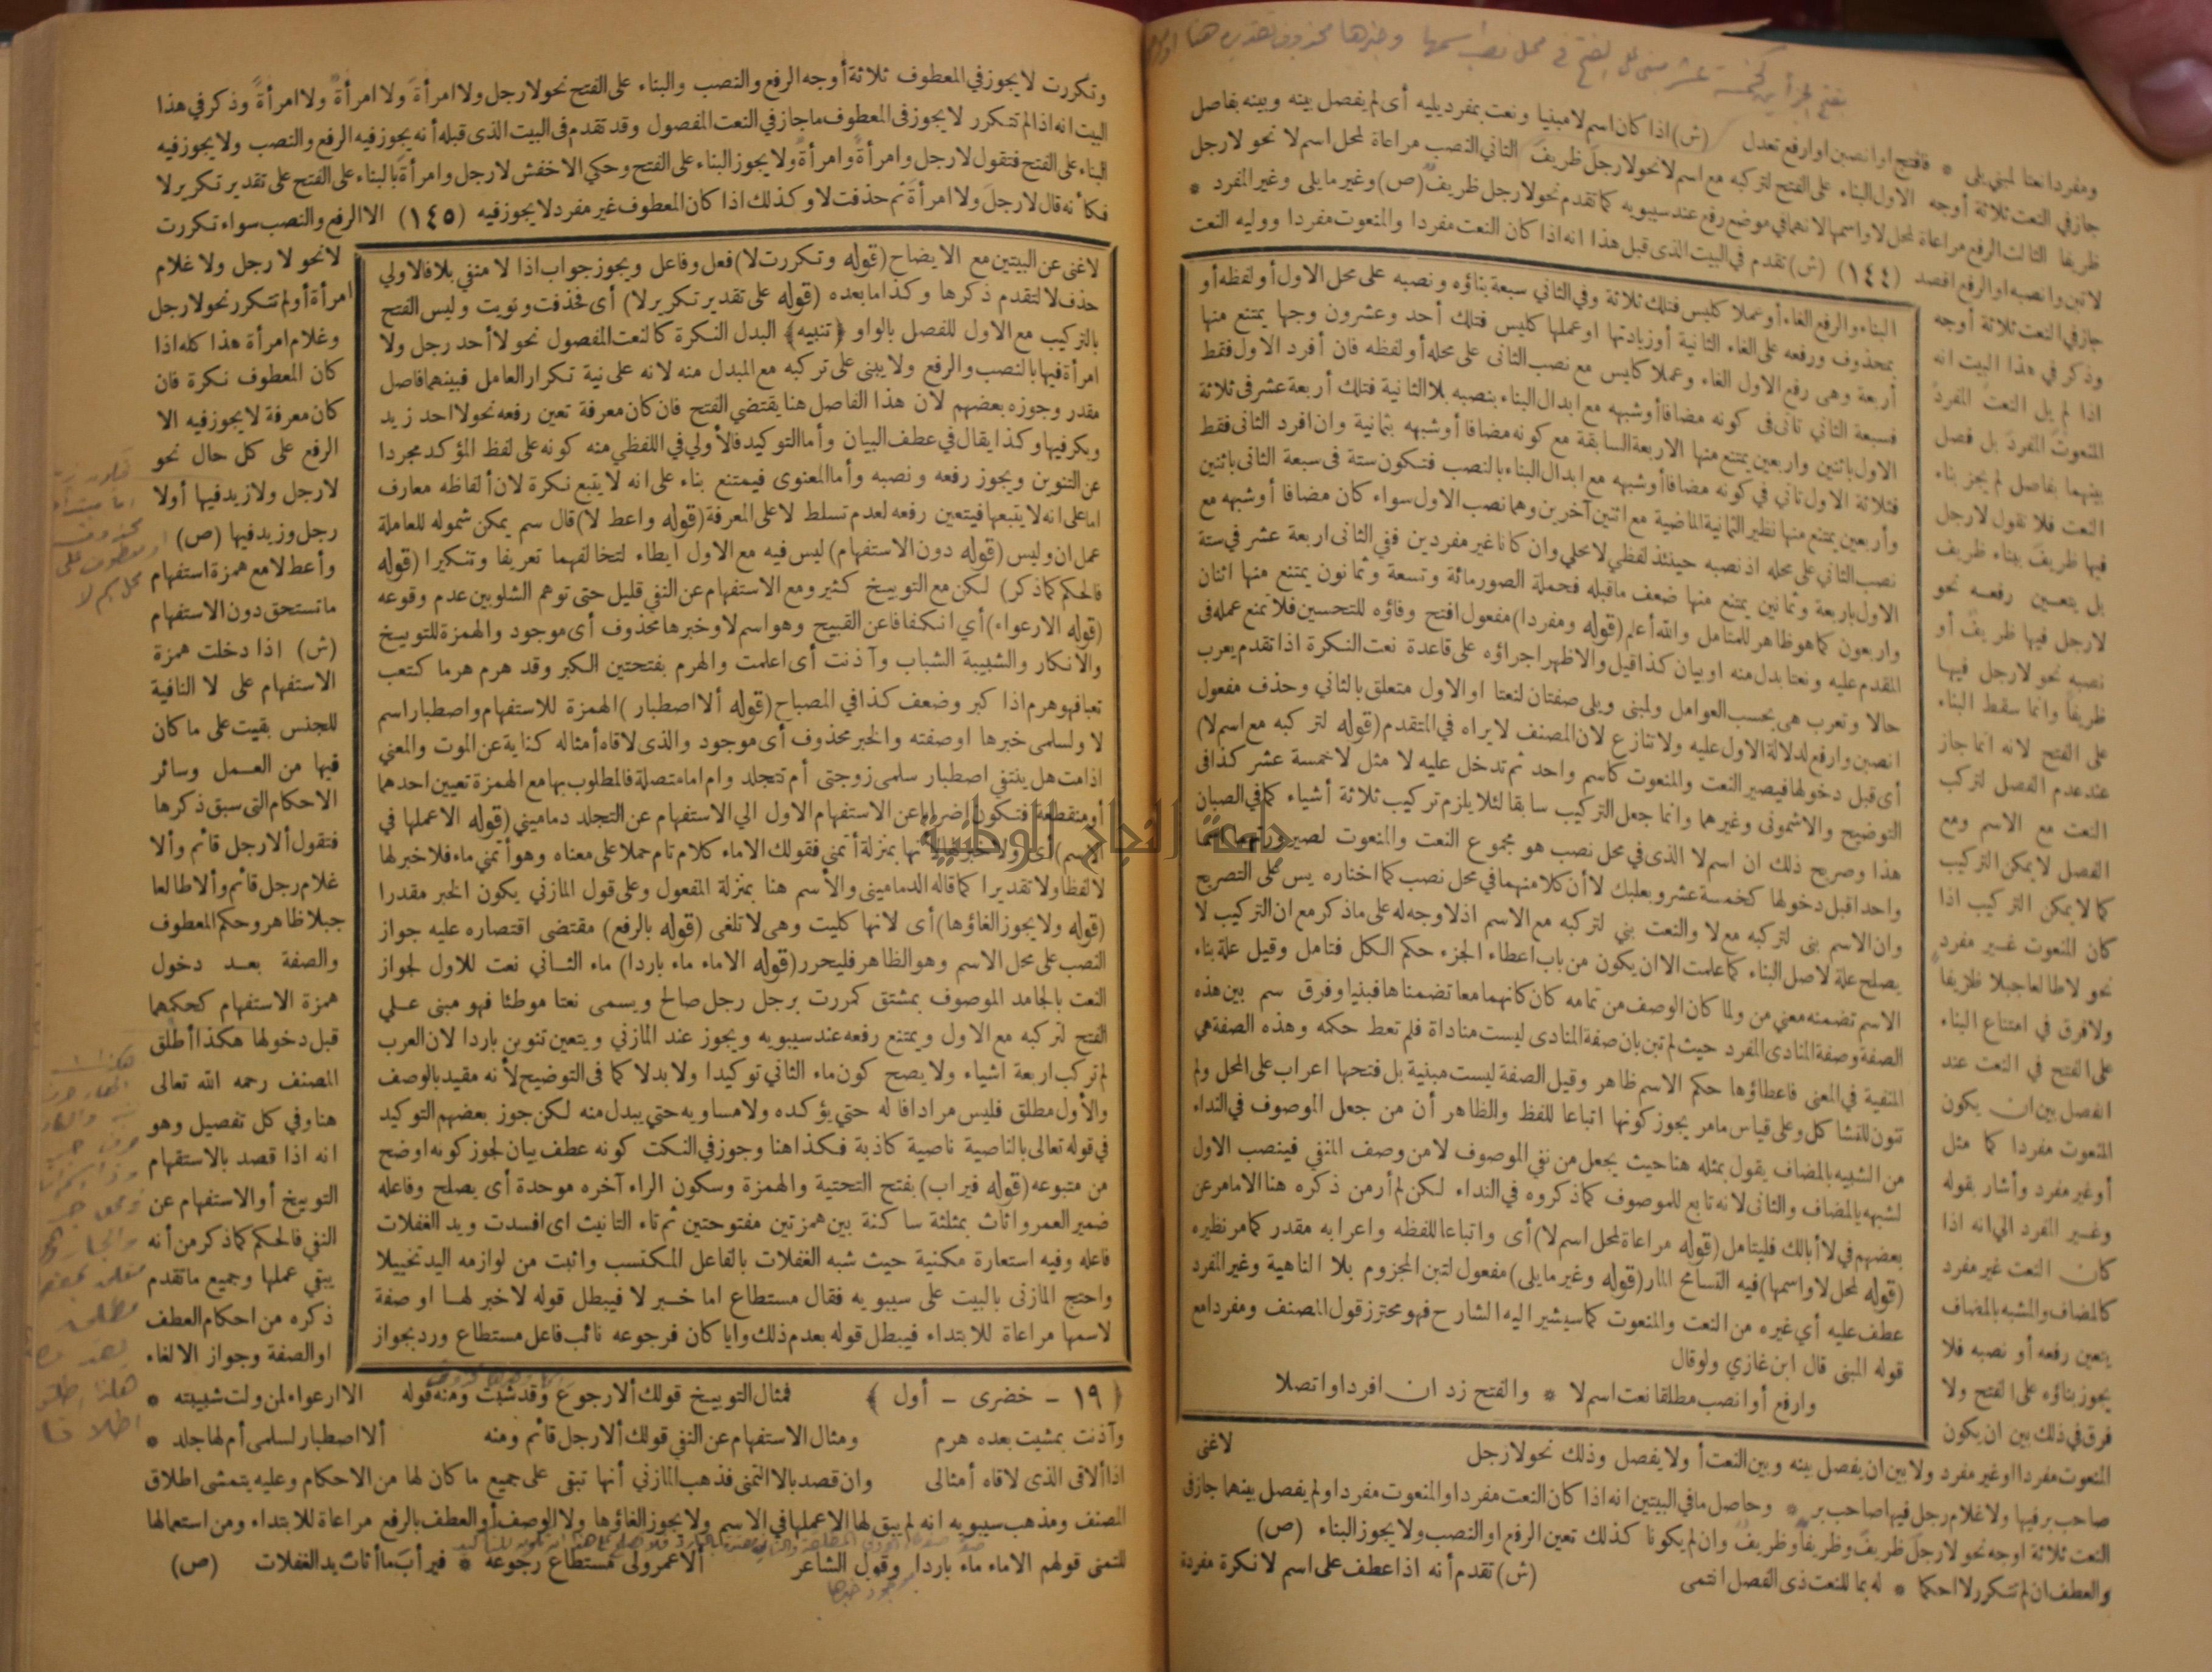 ومفردا نعتا لمبني يلى * فافتح او انصبن او ارفع تعدل (ش) اذا كان اسم لا مبنيا ونعت بمفرد يليه أى لم يفصل بينه وبينه بفاصل
جاز في النعت ثلاثة أوجه الاول البناء على الفتح لتركبه مع اسم لا نحو لا رجلَ ظريفَ الثاني النصب مراعاة لمحل اسم لا نحو لا رجل
ظريفا الثالث الرفع مراعاة لمحل لا واسمها لانهما في موضع رفع عند سيبويه كما تقدم نحو لا رجل ظريفٌ (ص) وغير ما يلى وغير المفرد *
لا تبن وانصبه او الرفع اقصد (١٤٤) (ش) تقدم في البيت الذى قبل هذا انه اذا كان النعت مفردا والمنعوت مفردا ووليه النعت
جاز في النعت ثلاثة أوجه
وذكر في هذا البيت انه
اذا لم يل النعت المفرد
المنعوت المفرد بل فصل
بينهما بفاصل لم يجز بناء
النعت فلا تقول لا رجل
فيها ظريفَ ببناء ظريف
بل يتعين رفعه نحو
لا رجل فيها ظريفٌ أو
نصبه نحو لا رجل فيها
ظريفاً وانما سقط البناء
على الفتح لانه انما جاز
عند عدم الفصل لتركب
النعت مع الاسم ومع
الفصل لا يمكن التركيب
كما لا يمكن التركيب اذا
كان المنعوت غير مفرد
نحو لا طالعا جبلا ظريفاً
ولا فرق في امتناع البناء
على الفتح في النعت عند
الفصل بين ان يكون
المنعوت مفردا كما مثل
أو غير مفرد وأشار بقوله
وغير المفرد الى انه اذا
كان النعت غير مفرد
كالمضاف والمشبه بالمضاف
يتعين رفعه أو نصبه فلا
يجوز بناؤه على الفتح ولا
فرق في ذلك بين ان يكون
البناء والرفع الغاء أو عملا كليس فتلك ثلاثة وفي الثاني سبعة بناؤه ونصبه على محل الاول أو لفظه أو
بمحذوف ورفعه على الغاء الثانية أو زيادتها او عملها كليس فتلك أحد وعشرون وجها يمتنع منها
أربعة وهى رفع الاول الغاء وعملا كليس مع نصب الثانى على محله أو لفظه فان أفرد الاول فقط
فسبعة الثاني تأتى فى كونه مضافا أو شبهه مع ابدال البناء بنصبه بلا الثانية فتلك أربعة عشر فى ثلاثة
الاول باثنين واربعين يمتنع منها الاربعة السابقة مع كونه مضافا أو شبهه بثمانية وان افرد الثانى فقط
فثلاثة الاول تأتي في كونه مضافا أو شبهه مع ابدال البناء بالنصب فتكون ستة فى سبعة الثانى باثنين
وأربعين يمتنع منها نظير الثمانية الماضية مع اثنين آخرين وهما نصب الاول سواء كان مضافا أو شبهه مع
نصب الثاني على محله اذ نصبه حينئذ لفظي لا محلي وان كانا غير مفردين ففي الثانى اربعة عشر في ستة
الاول باربعة وثمانين يمتنع منها ضعف ما قبله فجملة الصور مائة وتسعة وثمانون يمتنع منها اثنان
واربعون كما هو ظاهر للمتامل والله أعلم (قوله ومفردا) مفعول افتح وفاؤه للتحسين فلا تمنع عمله فى
المقدم عليه ونعتا بدل منه او بيان كذا قيل والاظهر اجراؤه على قاعدة نعت النكرة اذا تقدم يعرب
حالا وتعرب هى بحسب العوامل ولمبنى ويلى صفتان لنعتا او الاول متعلق بالثاني وحذف مفعول
انصبن وارفع لدلالة الاول عليه ولا تنازع لان المصنف لا يراه في المتقدم (قوله لتركبه مع اسم لا)
أى قبل دخولها فيصير النعت والمنعوت كاسم واحد ثم تدخل عليه لا مثل لا خمسة عشر كذا فى
التوضيح والاشمونى وغيرهما وانما جعل التركيب سابقا لئلا يلزم تركيب ثلاثة أشياء كما في الصبان
هذا وصريح ذلك ان اسم لا الذى في محل نصب هو مجموع النعت والمنعوت لصيرورتهما اسما
واحدا قبل دخولها كخمسة عشر وبعلبك لا أن كلا منهما في محل نصب كما اختاره يس على التصريح
وان الاسم بنى لتركبه مع لا والنعت بني لتركبه مع الاسم اذ لا وجه له على ما ذكر مع ان التركيب لا
يصلح علة لاصل البناء كما علمت الا ان يكون من باب اعطاء الجزء حكم الكل فتامل وقيل علة بناء
الاسم تضمنه معني من ولما كان الوصف من تمامه كان كانهما معا تضمناها فبنيا وفرق سم بين هذه
الصفة وصفة المنادى المفرد حيث لم تبن بان صفة المنادى ليست مناداة فلم تعط حكمه وهذه الصفة هي
المنفية في المعنى فاعطاؤها حكم الاسم ظاهر وقيل الصفة ليست مبنية بل فتحها اعراب على المحل ولم
تنون للتشاكل وعلى قياس مامر يجوز كونها اتباعا للفظ والظاهر أن من جعل الموصوف في النداء
من الشبيه بالمضاف يقول بمثله هنا حيث يجعل من نفي الموصوف لا من وصف المنفي فينصب الاول
لشبهه بالمضاف والثانى لانه تابع للموصوف كما ذكروه في النداء لكن لم أر من ذكره هنا الا مامر عن
بعضهم في لا أبا لك فليتامل (قوله مراعاة لمحل اسم لا) أى واتباعا للفظه واعرابه مقدر كما مر نظيره
(قوله لمحل لا واسمها) فيه التسامح المار (قوله وغير ما يلى) مفعول لتبن المجزوم بلا الناهية وغير المفرد
عطف عليه أي غيره من النعت والمنعوت كما سيشير اليه الشارح فهو محترز قول المصنف ومفردا مع
قوله المبنى قال ابن غازي ولو قال
وارفع أو انصب مطلقا نعت اسم لا * والفتح زد ان افردا واتصلا
لاغنى
المنعوت مفردا او غير مفرد ولا بين ان يفصل بينه وبين النعت أ ولا يفصل وذلك نحو لا رجل
صاحب بر فيها ولا غلام رجل فيها صاحب بر * وحاصل ما في البيتين انه اذا كان النعت مفردا والمنعوت مفردا ولم يفصل بينهما جاز فى
النعت ثلاثة اوجه نحو لا رجلَ ظريفَ وظريفاً وظريفٌ وان لم يكونا كذلك تعين الرفع او النصب ولا يجوز البناء (ص)
والعطف ان لم تتكرر لا احكما * له بما للنعت ذى الفصل انتمى (ش) تقدم أنه اذا عطف على اسم لا نكرة مفردة
وتكررت لا يجوز في المعطوف ثلاثة أوجه الرفع والنصب والبناء على الفتح نحو لا رجل ولا امرأةَ ولا امرأةٌ ولا امرأةً وذكر في هذا
البيت انه اذا لم تتكرر لا يجوز فى المعطوف ما جاز في النعت المفصول وقد تقدم فى البيت الذى قبله أنه يجوز فيه الرفع والنصب ولا يجوز فيه
البناء على الفتح فتقول لا رجل وامرأةٌ وامرأةً ولا يجوز البناء على الفتح وحكي الاخفش لا رجل وامرأةَ بالبناء على الفتح على تقدير تكرير لا
فكأنه قال لا رجلَ ولا امرأةَ ثم حذفت لا وكذلك اذا كان المعطوف غير مفرد لا يجوز فيه (١٤٥) الا الرفع والنصب سواء تكررت
لا نحو لا رجل ولا غلام
امرأة أو لم تتكرر نحو لا رجل
وغلام امرأة هذا كله اذا
كان المعطوف نكرة فان
كان معرفة لا يجوز فيه الا
الرفع على كل حال نحو
لا رجل ولا زيد فيها أو لا
رجل وزيد فيها (ص)
وأعط لا مع همزة استفهام
ما تستحق دون الاستفهام
(ش) اذا دخلت همزة
الاستفهام على لا النافية
للجنس بقيت على ما كان
فيها من العمل وسائر
الاحكام التى سبق ذكرها
فتقول ألا رجل قائم وألا
غلام رجل قائم وألا طالعا
جبلا ظاهر وحكم المعطوف
والصفة بعد دخول
همزة الاستفهام كحكمهما
قبل دخولها هكذا أطلق
المصنف رحمه الله تعالى
هنا وفي كل تفصيل وهو
انه اذا قصد بالاستفهام
التوبيخ أو الاستفهام عن
النفي فالحكم كما ذكر من أنه
يبقي عملها وجميع ما تقدم
ذكره من احكام العطف
والصفة وجواز الالغاء
لاغنى عن البيتين مع الايضاح (قوله وتكررت لا) فعل وفاعل ويجوز جواب اذا لا منفي بلا فالاولي
حذف لا لتقدم ذكرها وكذا ما بعده (قوله على تقدير تكرير لا) أى فحذفت ونويت وليس الفتح
بالتركيب مع الاول للفصل بالواو {تنبيه} البدل النكرة كالنعت المفصول نحو لا أحد رجل ولا
امرأة فيها بالنصب والرفع ولا يبنى على تركبه مع المبدل منه لانه على نية تكرار العامل فبينهما فاصل
مقدر وجوزه بعضهم لان هذا الفاصل هنا يقتضي الفتح فان كان معرفة تعين رفعه نحو لا احد زيد
وبكر فيها وكذا يقال في عطف البيان وأما التوكيد فالأولي في اللفظي منه كونه على لفظ المؤكد مجردا
عن التنوين ويجوز رفعه ونصبه وأما المعنوى فيمتنع بناء على انه لا يتبع نكرة لان ألفاظه معارف
اما على انه لا يتبعها فيتعين رفعه لعدم تسلط لا على المعرفة (قوله واعط لا) قال سم يمكن شموله للعاملة
عمل ان وليس (قوله دون الاستفهام) ليس فيه مع الاول ايطاء لتخالفهما تعريفا وتنكيرا (قوله
فالحكم كما ذكر) لكن مع التوبيخ كثير ومع الاستفهام عن النفي قليل حتى توهم الشلوبين عدم وقوعه
(قوله الارعواء) أي انكفافا عن القبيح وهو اسم لا وخبرها محذوف أى موجود والهمزة للتوبيخ
والانكار والشبيبة الشباب وآذنت أى اعلمت والهرم بفتحتين الكبر وقد هرم هرما كتعب
تعبا فهو هرم اذا كبر وضعف كذا في المصباح (قوله ألا اصطبار) الهمزة للاستفهام واصطبار اسم
لا ولسلمى خبرها او صفته والخبر محذوف أى موجود والذى لاقاه أمثاله كناية عن الموت والمعني
اذا مت هل ينتفي اصطبار سلمى زوجتى أم تتجلد وام اما متصلة فالمطلوب بها مع الهمزة تعيين احدهما
أو منقطعة فتكون اضرابا عن الاستفهام الاول الي الاستفهام عن التجلد دماميني (قوله الا عملها في
الاسم) أى ولا خبر لها لانها بمنزلة أتمني فقولك الا ماء كلام تام حملا على معناه وهو أتمني ماء فلا خبر لها
لا لفظا ولا تقديرا كما قاله الدمامينى والأسم هنا بمنزلة المفعول وعلى قول المازني يكون الخبر مقدرا
(قوله ولا يجوز الغاؤها) أى لانها كليت وهى لا تلغى (قوله بالرفع) مقتضى اقتصاره عليه جواز
النصب على محل الاسم وهو الظاهر فليحرر (قوله الا ماء ماء باردا) ماء الثاني نعت للاول لجواز
النعت بالجامد الموصوف بمشتق كمررت برجل رجل صالح ويسمى نعتا موطئا فهو مبنى على
الفتح لتركبه مع الاول ويمتنع رفعه عند سيبويه ويجوز عند المازني ويتعين تنوين باردا لان العرب
لم تركب اربعة اشياء ولا يصح كون ماء الثاني توكيدا ولا بدلا كما فى التوضيح لأنه مقيد بالوصف
والأول مطلق فليس مرادفا له حتي يؤكده ولا مساويه حتي يبدل منه لكن جوز بعضهم التوكيد
في قوله تعالى بالناصية ناصية كاذبة فكذا هنا وجوز في النكت كونه عطف بيان لجوز كونه اوضح
من متبوعه (قوله فيرأب) بفتح التحتية والهمزة وسكون الراء آخره موحدة أى يصلح وفاعله
ضمير العمر واثأت بمثلثة ساكنة بين همزتين مفتوحتين ثم تاء التانيث اى افسدت ويد الغفلات
فاعله وفيه استعارة مكنية حيث شبه الغفلات بالفاعل المكتسب واثبت من لوازمه اليد تخييلا
واحتج المازنى بالبيت على سيبويه فقال مستطاع اما خبر لا فيبطل قوله لا خبر لها او صفة
لاسمها مراعاة للابتداء فيبطل قوله بعدم ذلك وايا كان فرجوعه نائب فاعل مستطاع ورد بجواز
{ ١٩ - خضرى - أول } فمثال التوبيخ قولك ألا رجوعَ وقد شبت ومنه قوله الا ارعواء لمن ولت شبيبته *
وآذنت بمشيب بعده هرم ومثال الاستفهام عن النفي قولك ألا رجل قائم ومنه ألا اصطبار لسلمى أم لها جلد *
اذا ألاقى الذى لاقاه أمثالى وان قصد بالا التمنى فذهب المازني أنها تبقى على جميع ما كان لها من الاحكام وعليه يتمشى اطلاق
المصنف ومذهب سيبويه انه لم يبق لها الا عملها في الاسم ولا يجوز الغاؤها ولا الوصف أو العطف بالرفع مراعاة للابتداء ومن استعمالها
للتمنى قولهم الا ماء ماء باردا وقول الشاعر ألا عمر ولى مستطاع رجوعه * فيرأبَ ما أثأت يد الغفلات (ص)
جامعة النجاح الوطنية